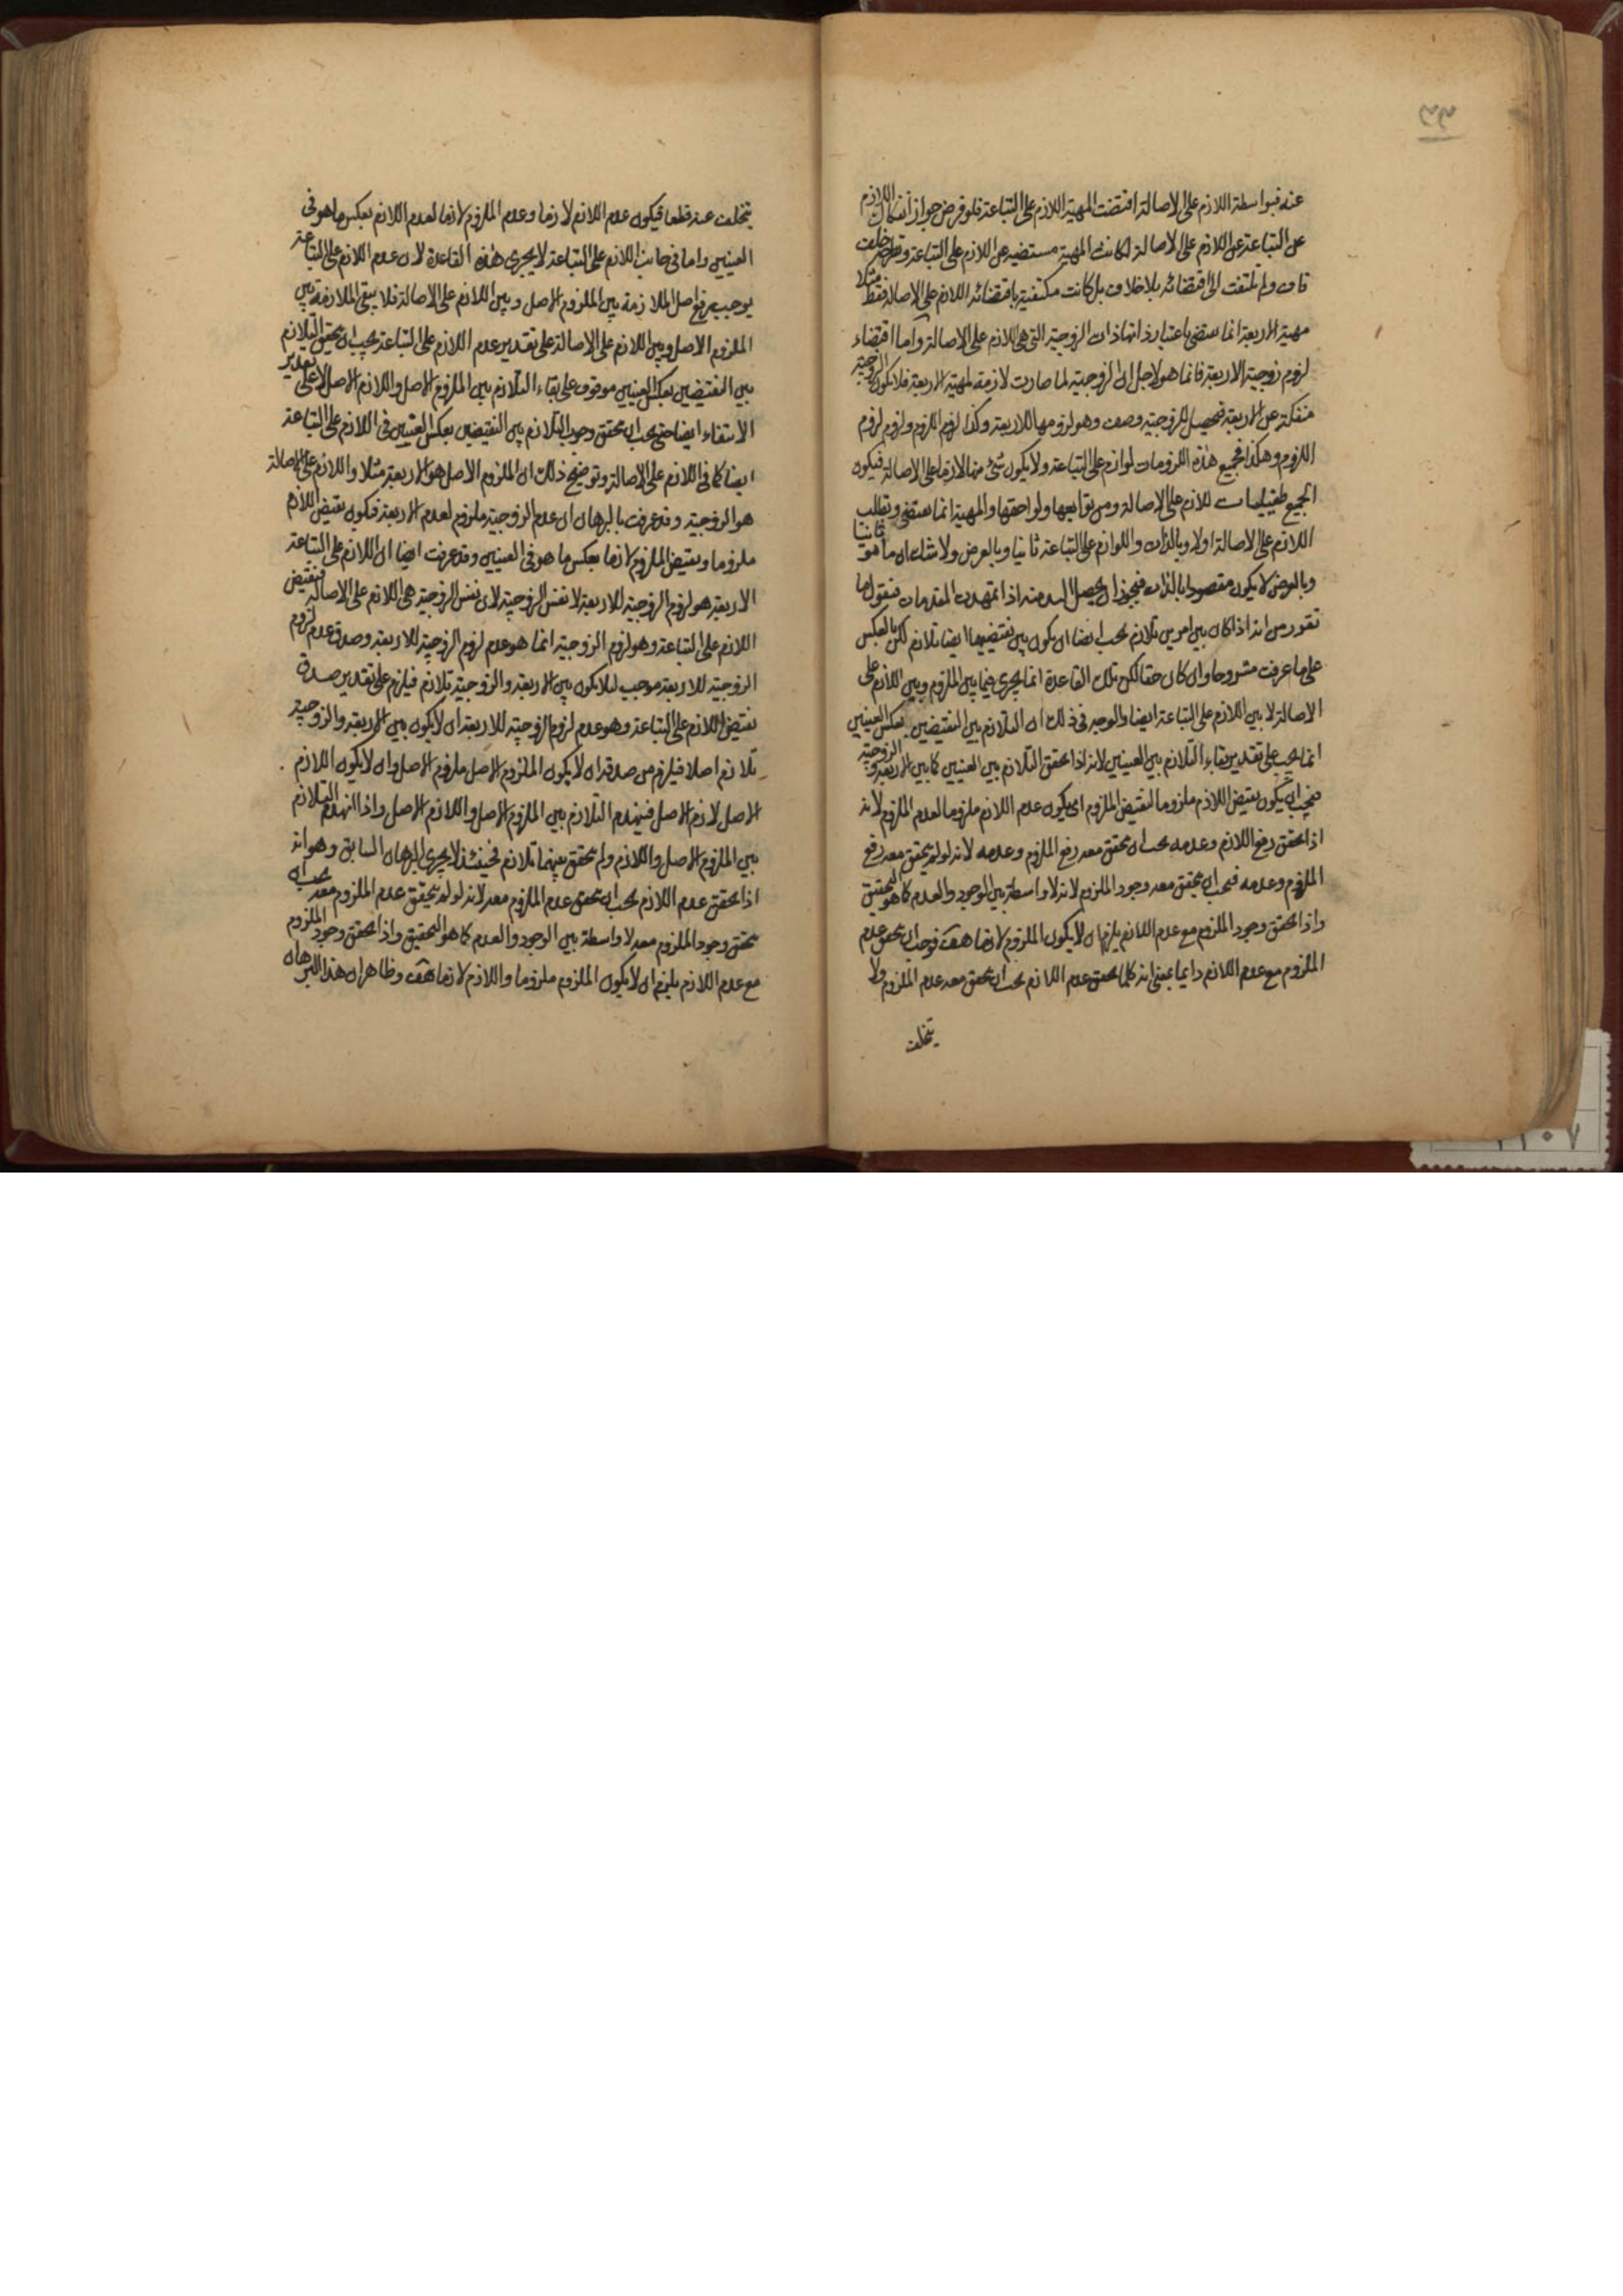 ٣٣
عنه فبواسطة اللازم على الاصالة اقتضت المهية اللازم على التباعة فلو فرض جواز انفكاك اللازم
على التباعة عن اللازم على الاصالة لكانت المهية مستضيه عن اللازم على التباعة و
ولم تلتفت الى اقتضائه بلا خلاف بل كانت مكتفية باقتضائه اللازم على الاصالة فقط مثلا
مهية الاربعة انما يقتضى باعتبار ذاتها ذات الزوجية التى هى اللازم على الاصالة واما اقتضاء
لزوم زوجية الاربعة فانما هو لاجل ان الزوجية لما صارت لازمة لمهية الاربعة فلا يكون الزوجية
منفكة عن الاربعة فحصل للزوجية وصف وهو لزومها للاربعة وكذا لزوم اللزوم ولزوم لزوم
اللزوم وهكذا فجميع هذه اللزومات لوازم على التباعة ولا يكون شئ منها لازما على الاصالة فيكون
الجميع طفيليات للازم على الاصالة ومن توابعها ولواحقها والمهية انما يقتضى ويطلب
اللازم على الاصالة اولا وبالذات واللوازم على التباعة ثانيا وبالعرض ولا شك ان ما هو ثانيا
وبالعرض لا يكون مقصودا بالذات فيجوز ان يحصل السد منه اذا تمهدت المقدمات فنقول ما
تقرر من انه اذا كان بين امرين تلازم يجب ايضا ان يكون بين نقيضيهما ايضا تلازم لكن بالعكس
على ما عرفت مشروحا وان كان حقا لكن تلك القاعدة انما يجرى فيما بين الملزوم وبين اللازم على
الاصالة لا بين اللازم على التباعة ايضا والوجه فى ذلك ان التلازم بين النقيضين بعكس العينين
انما يجب على تقدير بقاء التلازم بين العينين لانه اذا تحقق التلازم بين العينين كما بين الاربعة والزوجية
فيجب ان يكون نقيض اللازم ملزوما لنقيض الملزوم اى يكون عدم اللازم ملزوما لعدم الملزوم لانه
اذا تحقق رفع اللازم وعدمه يجب ان يتحقق معه رفع الملزوم وعدمه لانه لو لم يتحقق معه رفع
الملزوم وعدمه فيجب ان يتحقق معه وجود الملزوم لانه لا واسطة بين الوجود والعدم كما هو التحقيق
واذا تحقق وجود الملزوم مع عدم اللازم يلزم ان لا يكون الملزوم لازما هف فوجب ان يتحقق عدم
الملزوم مع عدم اللازم دايما بمعنى انه كلما تحقق عدم اللازم يجب ان يتحقق معه عدم الملزوم ولا
يتخلف
يتخلف عنه قطعا فيكون عدم اللازم لازما وعدم الملزوم لازما لعدم اللازم بعكس ما هو فى
العينين واما فى جانب اللازم على التباعة لا يجرى هذه القاعدة لان عدم اللازم على التباعة
يوجب رفع اصل الملازمة بين الملزوم الاصل وبين اللازم على الاصالة فلا يبقى الملازمة بين
الملزوم الاصل وبين اللازم على الاصالة على تقدير عدم اللازم على التباعة يجب ان يتحقق التلازم
بين النقيضين بعكس العينين موقوف على بقاء التلازم بين الملزوم الاصل واللازم الاصل لا على تقدير
الانتفاء ايضا حتى يجب ان يتحقق وجوب التلازم بين النقيضين بعكس العينين فى اللازم على التباعة
ايضا كما فى اللازم على الاصالة وتوضيح ذلك ان الملزوم الاصل هو الاربعة مثلا واللازم على الاصالة
هو الزوجية وقد عرفت بالبرهان ان عدم الزوجية ملزوم لعدم الاربعة فيكون نقيض اللازم
ملزوما ونقيض الملزوم لازما بعكس ما هو فى العينين وقد عرفت ايضا ان اللازم على التباعة
الاربعة هو لزوم الزوجية للاربعة لا نفس الزوجية لان نفس الزوجية هى اللازم على الاصالة فنقيض
اللازم على التباعة وهو لزوم الزوجية انما هو عدم لزوم الزوجية للاربعة وصدق عدم لزوم
الزوجية للاربعة موجب لئلا يكون بين الاربعة والزوجية تلازم فيلزم على تقدير صدق
نقيض اللازم على التباعة وهو عدم لزوم الزوجية للاربعة ان لا يكون بين الاربعة والزوجية
تلازم اصلا فيلزم من صدقه ان لا يكون الملزوم الاصل ملزوم الاصل وان لا يكون اللازم
الاصل لازم الاصل فينهدم التلازم بين الملزوم الاصل واللازم الاصل واذا انهدم التلازم
بين الملزوم الاصل واللازم ولم يتحقق بينهما تلازم فحينئذ لا يجرى البرهان السابق وهو انه
اذا تحقق عدم اللازم يجب ان يتحقق عدم الملزوم معه لانه لو لم يتحقق عدم الملزوم معه يجب ان
يتحقق وجود الملزوم معه لا واسطة بين الوجود والعدم كما هو التحقيق واذا تحقق وجود الملزوم
مع عدم اللازم يلزم ان لا يكون الملزوم ملزوما واللازم لازما هف وظاهر ان هذا البرهان